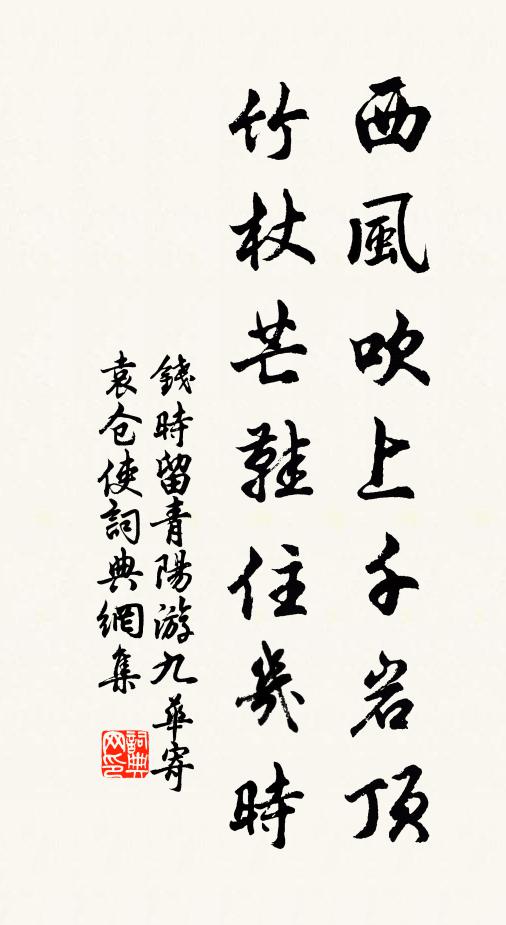 西風吹上千岩頂
竹杖芒鞋住幾時
錢時留青陽游九華寄
袁仓使詞典網集
詞典網印